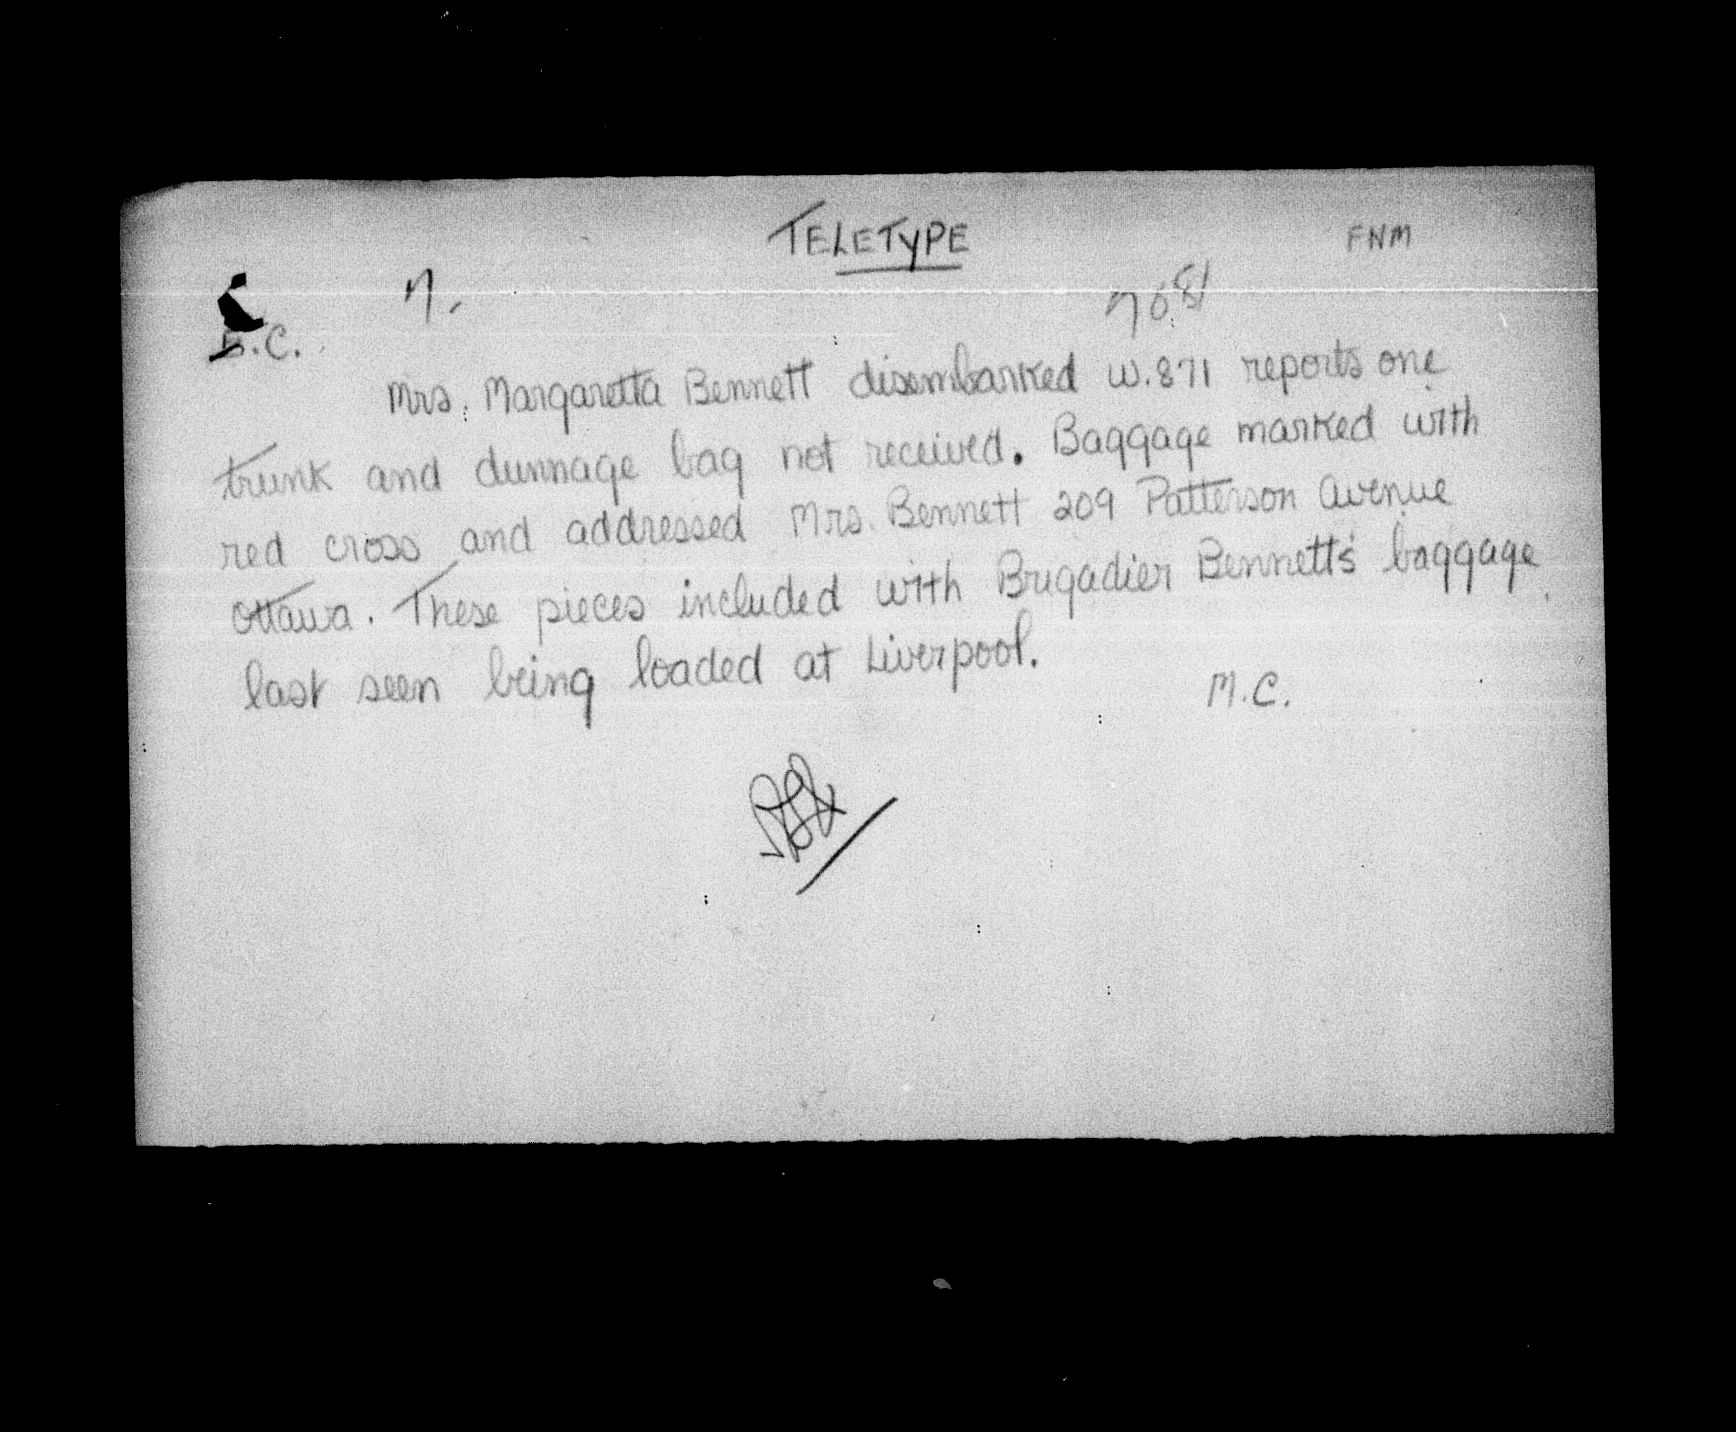 TELETYPE
FNM
.C.
Mrs. Margaretta Bennett disembarked W.871 reports one
trunk and dunnage bag not received. Baggage marked with
red cross and addressed Mrs. Bennett 209 Patterson Avenue
Ottawa. These pieces included with Brigadier Bennett's baggage
last seen being loaded at Liverpool.
M.C.